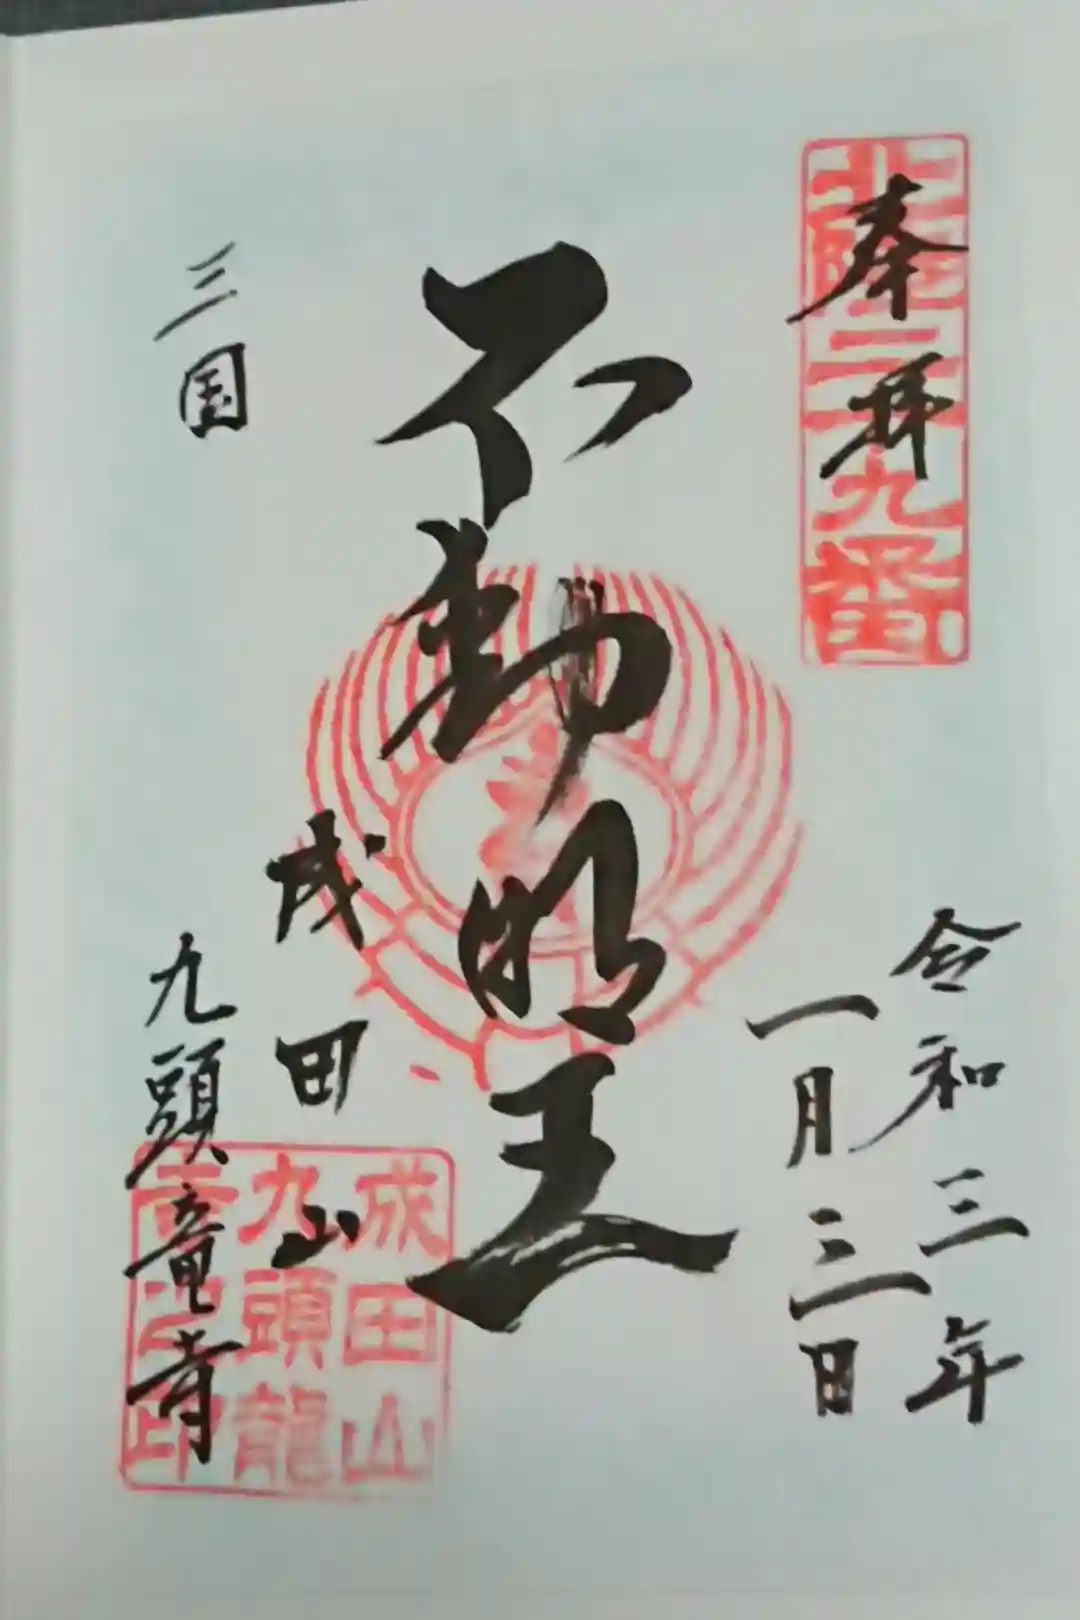 奉拝
北陸二十九番
令和三年
一月三日
不動明王
三国
成田山
九頭竜寺
成田山
九頭龍
寺之印